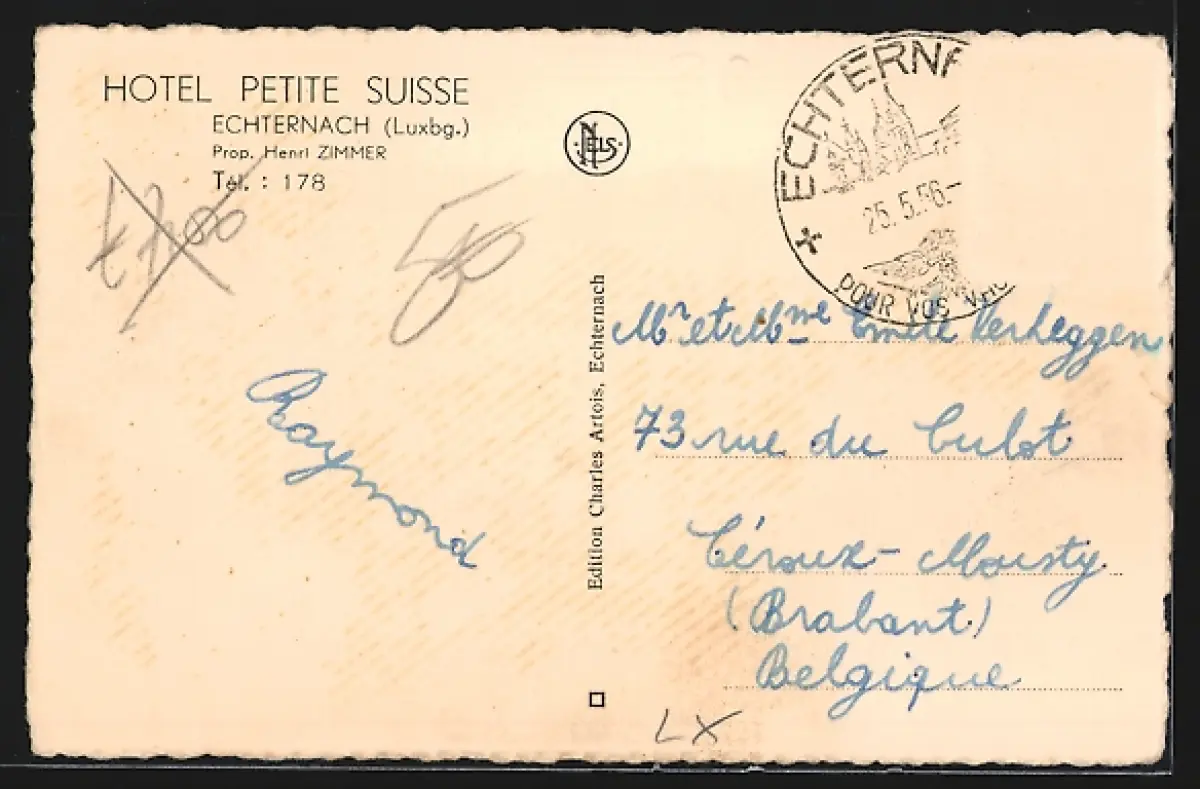 HOTEL PETITE SUISSE
ECHTERNACH (Luxbg.)
Prop. Henri ZIMMER
Tél. : 178
NELS
ECHTERNA
25.5.56.-
POUR VOS VAC
50
Raymond
Edition Charles Artois, Echternach
Mr et Mme Emile Verheggen
73 rue du Culot
Céroux-Mousty
(Brabant)
Belgique
LX